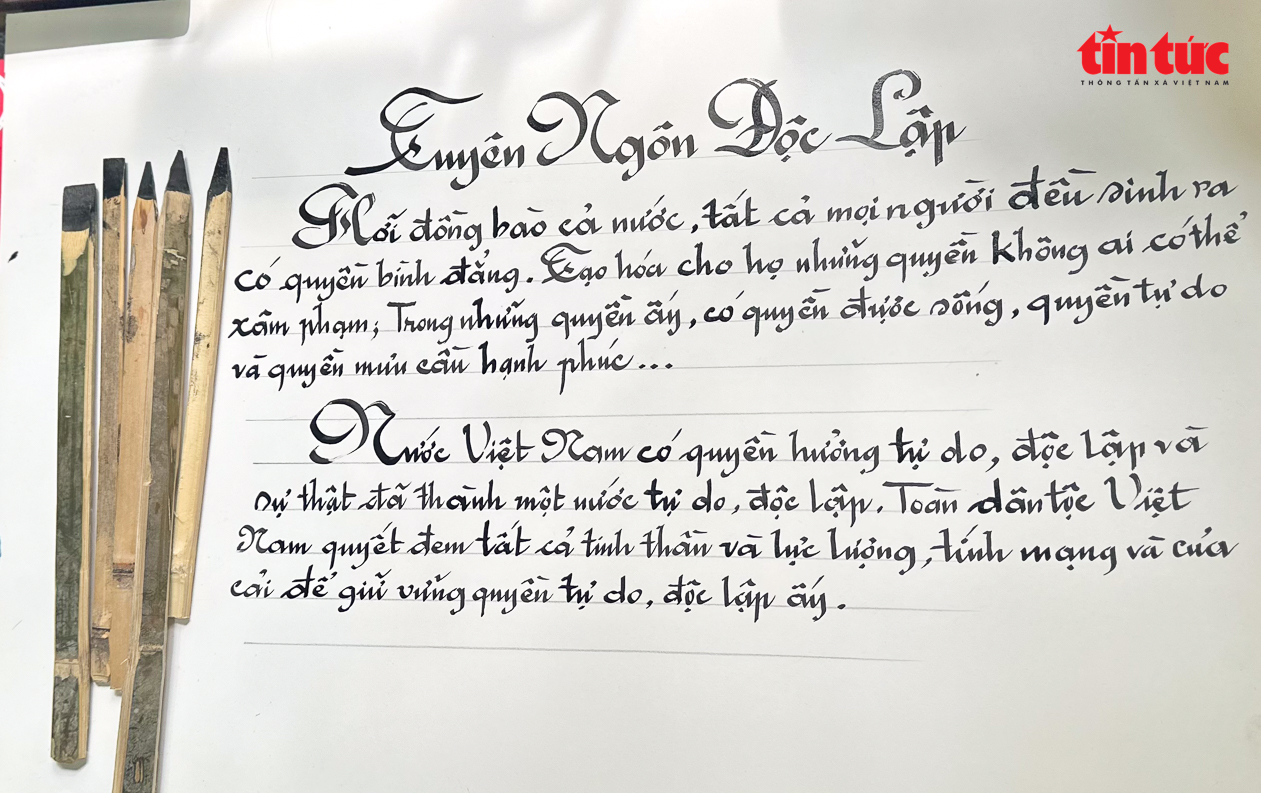 tin tức
THÔNG TẤN XÃ VIỆT NAM
Tuyên Ngôn Độc Lập
Hỡi đồng bào cả nước, tất cả mọi người đều sinh ra
có quyền bình đẳng. Tạo hóa cho họ những quyền không ai có thể
xâm phạm; Trong những quyền ấy, có quyền được sống, quyền tự do
và quyền mưu cầu hạnh phúc...
Nước Việt Nam có quyền hưởng tự do, độc lập và
sự thật đã thành một nước tự do, độc lập. Toàn dân tộc Việt
Nam quyết đem tất cả tinh thần và lực lượng, tính mạng và của
cải để giữ vững quyền tự do, độc lập ấy.